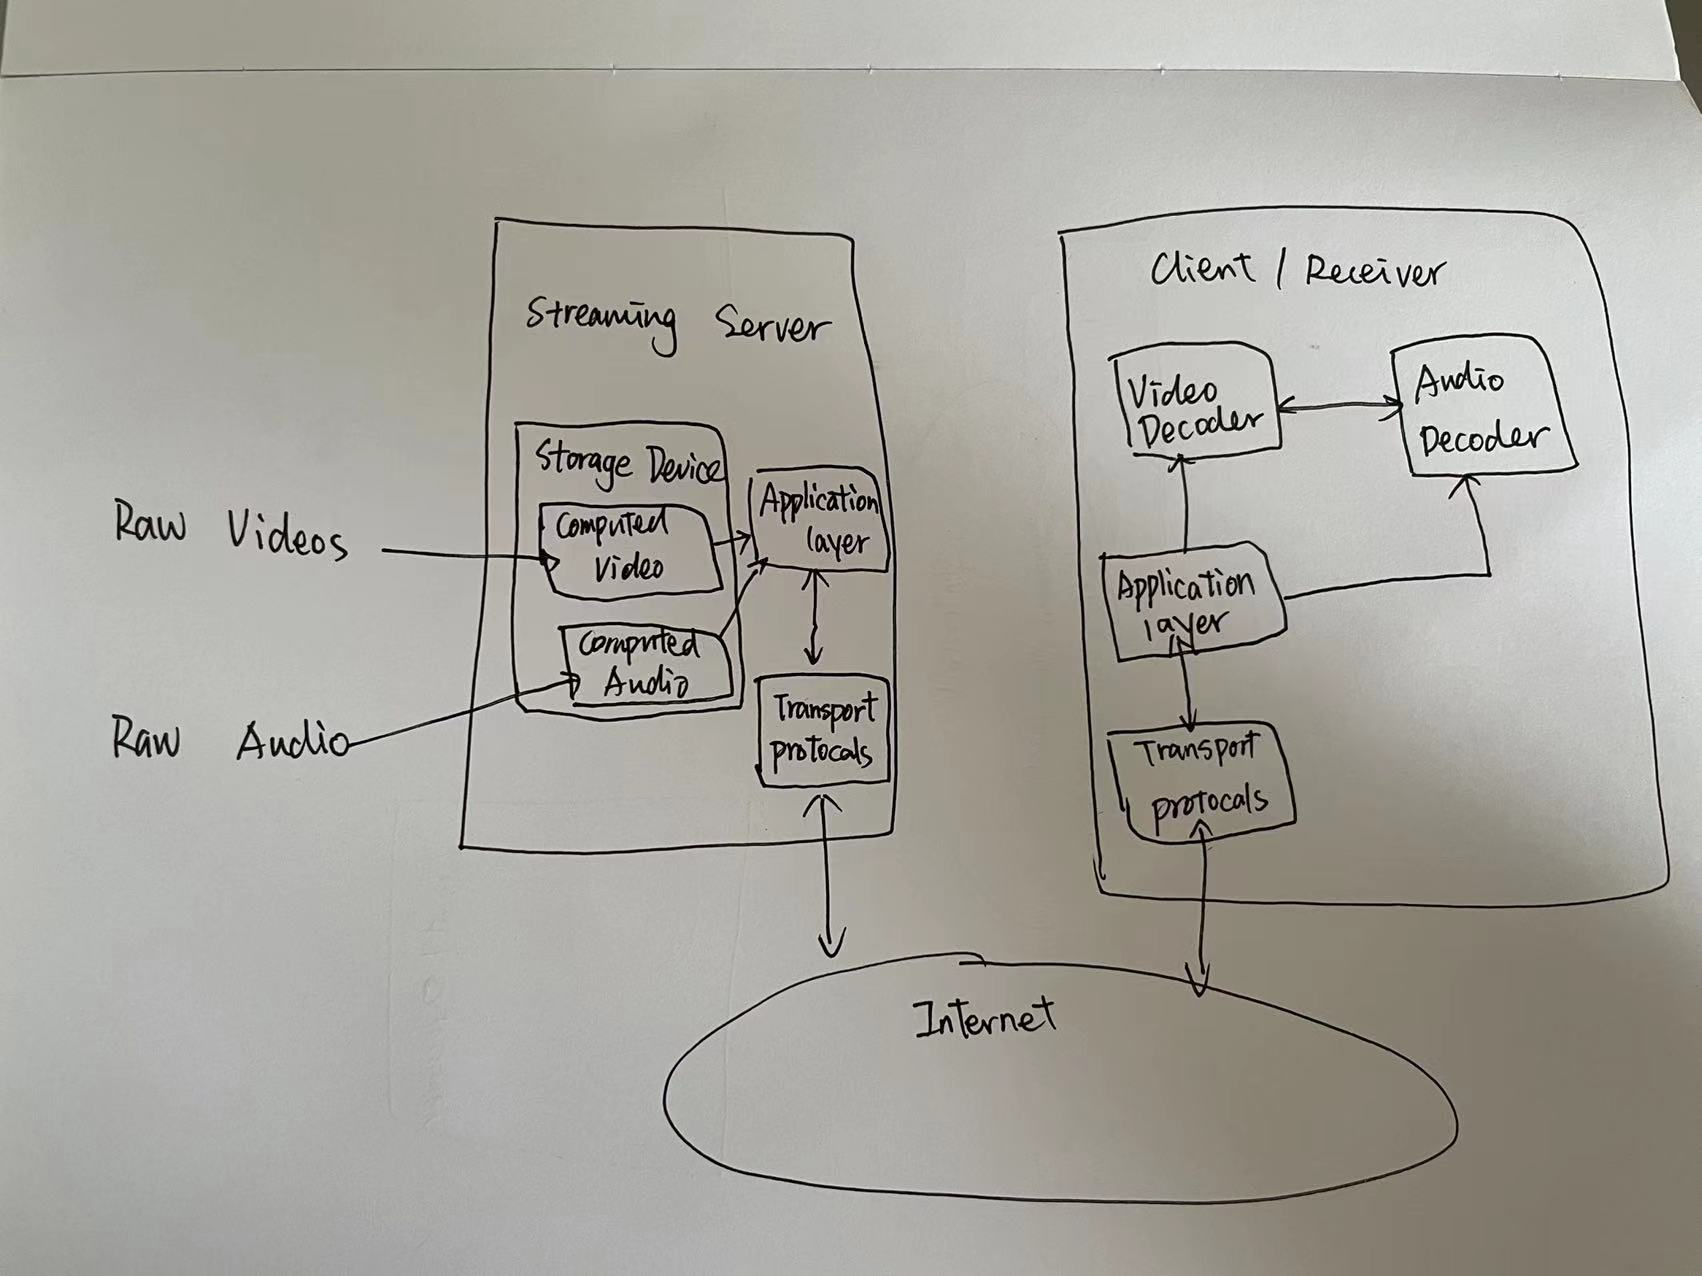 Streaming Server
Storage Device
Computed
Video
Computed
Audio
Application
layer
Transport
protocals
Raw Videos
Raw Audio
Client / Receiver
Video
Decoder
Audio
Decoder
Application
layer
Transport
protocals
Internet